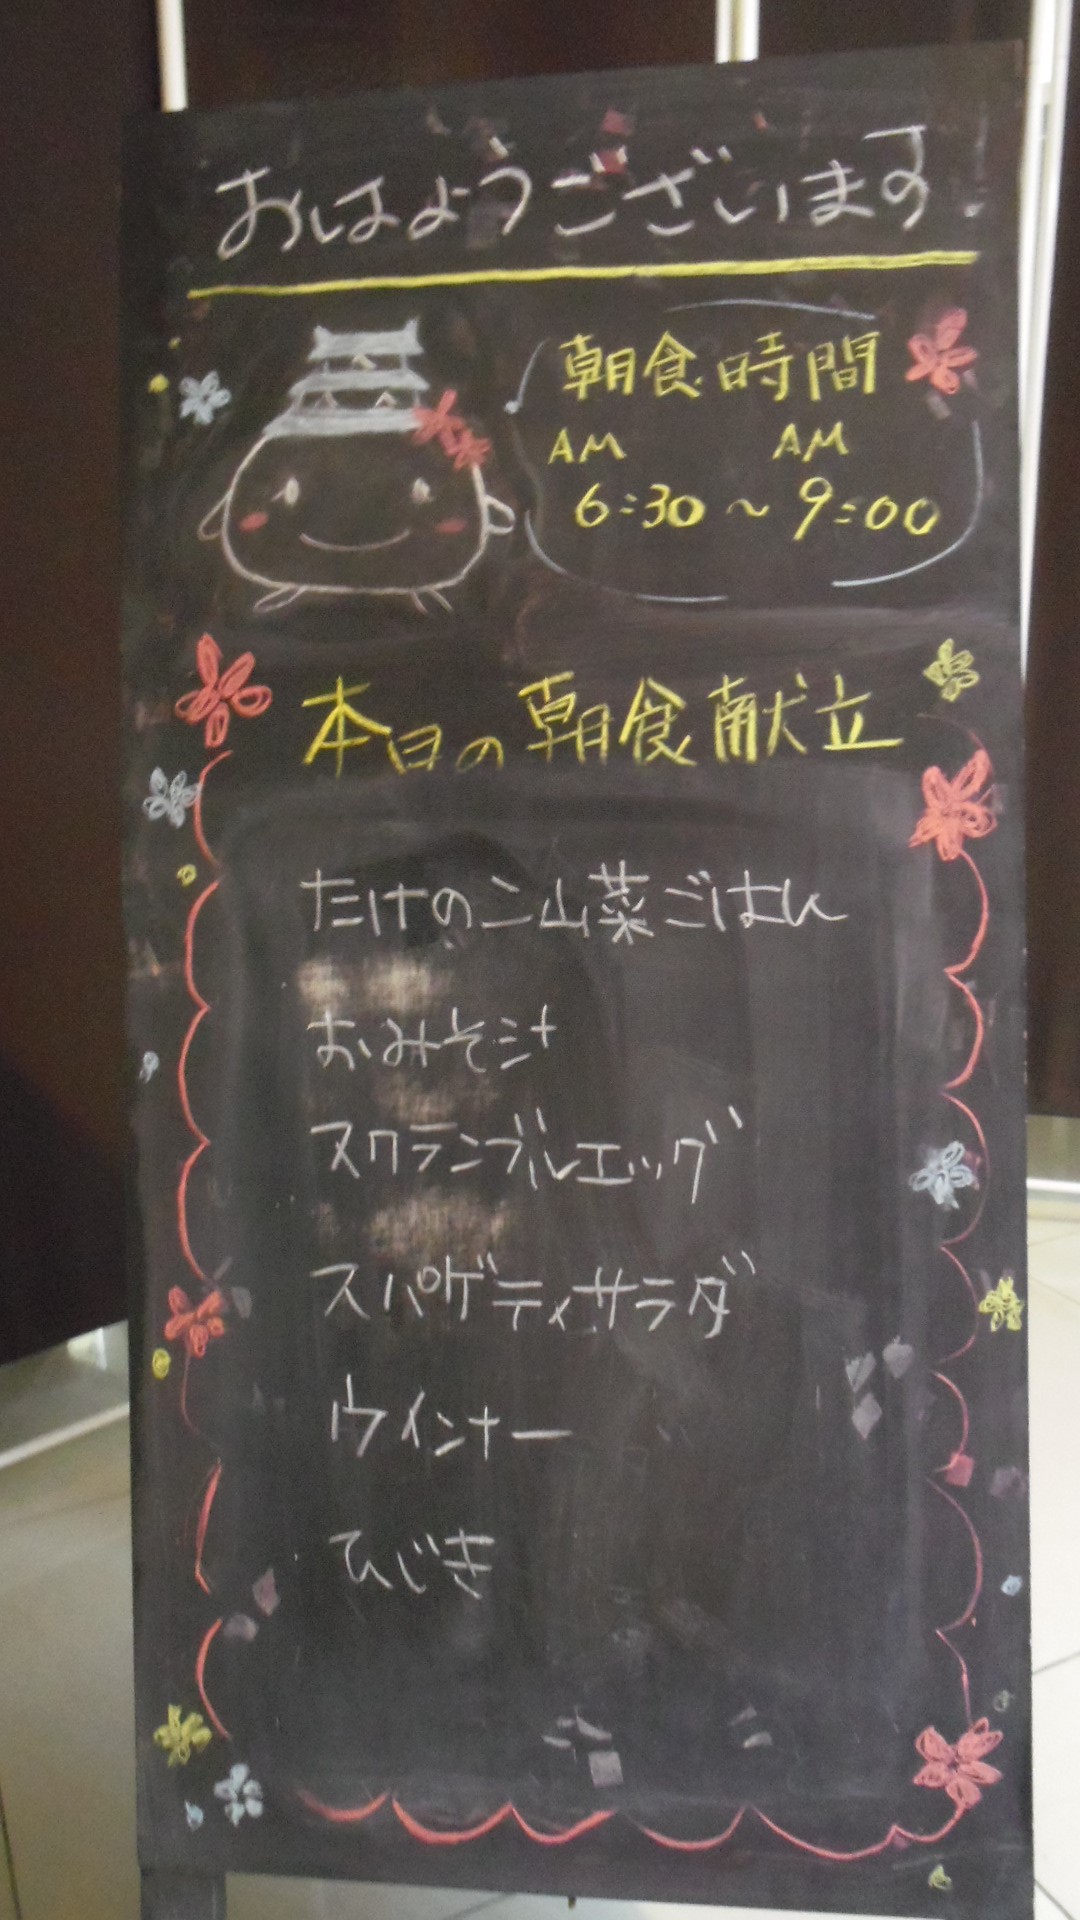 おはようございます
朝食時間
AM AM
6:30～9:00
本日の朝食献立
たけのこ山菜ごはん
おみそ汁
スクランブルエッグ
スパゲティサラダ
ウインナー
ひじき